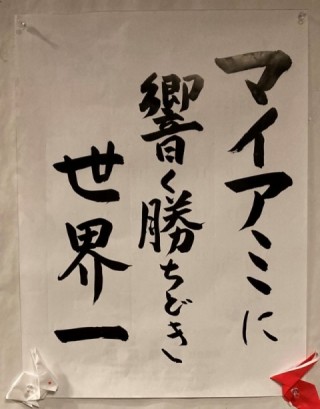 マイアミに
響く勝ちどき
世界一